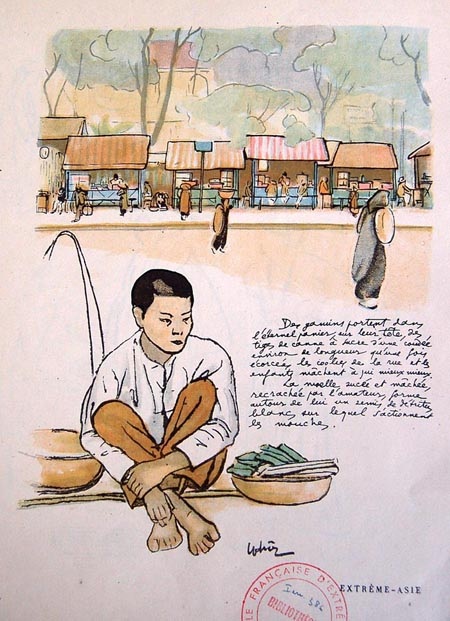 Des gamins portent dans
l'éternel panier, sur leur tête, des
tiges de canne à sucre d'une coudée
environ de longueur qu'une fois
écorcée, les coolies de la rue et les
enfants mâchent à qui mieux mieux.
La moelle, sucée et mâchée,
recrachée par l'amateur, forme
autour de lui un semis de détritus
blanc, sur lequel s'actionnent
les mouches.
EXTRÊME-ASIE
LE FRANÇAISE D'EXTRÊ
BIBLIOTHÈ